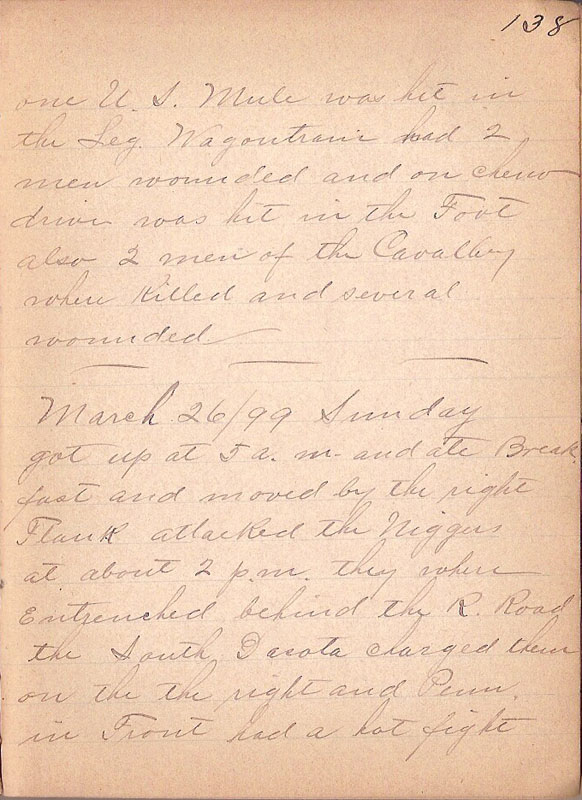 138
one U. S. Mule was hit in
the Leg. Wagontrain had 2
men wounded and on chino
drive was hit in the Foot
also 2 men of the Cavallry
where Killed and several
wounded
March 26/99 Sunday
got up at 5 a. m. and ate Break
fast and moved by the right
Flank attacked the Niggers
at about 2 p.m. they where
Entrenched behind the R. Road
the South Dacota charged them
on the the right and Penn.
in Front had a hot fight